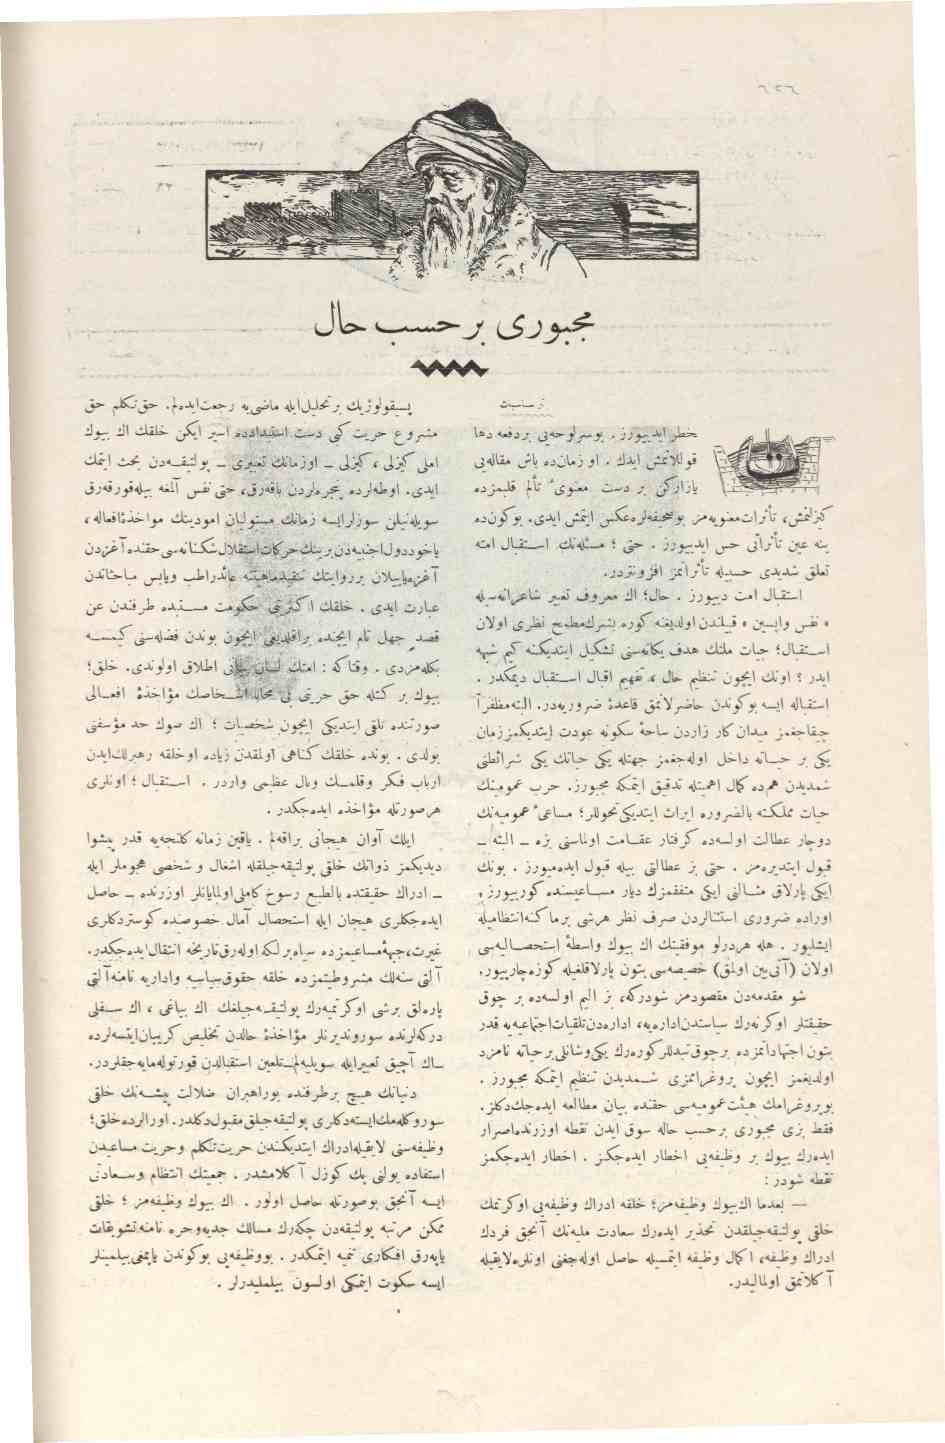 مجبوری بر حسب حال
خطر ایدییورز . بوسرلوحه‌یی بردفعه دها
قوللانمش ایدك . او زمان‌ده باش مقاله‌یی
یازارکن بر دست معنوی تألم قلبمزده
کیزلنمش، تأثرات معنویه‌مز بوصحیفه‌لره‌عکس ایتمش ایدی. بوکون‌ده
ینه عین تأثراتی حس ایدییورز . حتی ؛ مسئله‌نك استقبال امته
تعلق شدیدی حسبیله تأثراتمز افزونتردر.
استقبال امت دییورز . حال؛ اك معروف تعبیر شاعرانه‌سیله
« نفس واپسین » قبیلندن اولدیغنه کوره بشرك مطمح نظری اولان
استقبال؛ حیات ملتك هدف یکانه‌سنی تشکیل ایتدیکنه کیم شبهه
ایدر ؟ اونك ایچون تنظیم حال ، تفهیم اقبال استقبال دیمکدر .
استقباله ایسه بوکوندن حاضرلانمق قاعدهٔ ضروریه‌در. البته‌مظفراً
چیقاجغمز میدان کار زاردن ساحهٔ سکونه عودت ایتدیکمززمان
یکی بر حیاته داخل اوله‌جغمز جهتله یکی حیاتك یکی شرائطنی
شمدیدن هم‌ده کمال اهمیتله تدقیق ایتمکه مجبورز. حرب عمومینك
حیات مملکته بالضروره ایراث ایتدیکی‌تحوللر؛ مساعیٔ عمومیه‌نك
دوچار عطالت اولسه‌ده کرفتار عقامت اولماسنی بزه ـ البته ـ
قبول ایتدیره‌مز . حتی بز عطالتی بیله قبول ایده‌میورز . بونك
ایکی پارلاق مثالنی ایکی متفقمزك دیار مساعیسنده کوریبورز ،
اوراده ضروری استثنالردن صرف نظر هرشی برماکنه‌انتظامیله
ایشلیور . هله هردرلو موفقیتك اك بیوك واسطهٔ استحصالیه‌سی
اولان (آتی‌بین اولمق) خصیصه‌سی بتون پارلاقلغیله کوزه‌چارپیور.
شو مقدمه‌دن مقصودمز شودرکه، بز الیم اولسه‌ده بر چوق
حقیقتلر اوکرنه‌رك سیاستدن‌اداره‌یه، اداره‌دن‌تلقیات‌اجتماعیه‌یه قدر
بتون اجتهاداتمزده برچوق‌تبدللرکوره‌رك یکی‌وشانلی‌برحیاته نامزد
اولدیغمز ایچون پروغرامزی شمدیدن تنظیم ایتمکه مجبورز .
بوپروغرامك هیئت‌عمومیه‌سی حقنده بیان مطالعه ایده‌جك‌دکلز.
فقط بزی مجبوری برحسب حاله سوق ایدن نقطه اوزرنده‌اصرار
ایده‌رك بیوك بر وظیفه‌یی اخطار ایده‌جکز . اخطار ایده‌جکمز
نقطه شودر :
— بعدما اك‌بیوك وظیفه‌مز؛ خلقه ادراك وظیفه‌یی اوکرتمك
خلقی پولتیقه‌جیلقدن تحذیر ایده‌رك سعادت ملیه‌نك آنجق فردك
ادراك وظیفه، اکمال وظیفه ایتمسیله حاصل اوله‌جغنی اونلره‌لایقیله
آکلاتمق اولمالیدر.
پسیقولوژیك بر تحلیل‌ایله ماضی‌یه رجعت‌ایده‌لم. حق‌تکلم حق
مشروع حریت کبی دست استبدادده اسیر ایکن خلقك اك بیوك
املی کیزلی ، کیزلی ـ اوزمانك تعبیری ـ پولتیقه‌دن بحث ایتمك
ایدی. اوطه‌لرده پنجره‌لردن باقه‌رق، حتی نفس آلمغه بیله‌قورقه‌رق
سویله‌نیلن سوزلرایسه زمانك مسئولیان امورینك مواخذهٔ‌افعاله،
یاخوددول‌اجنبیه‌دن‌برینك حرکات‌استقلال‌شکنانه‌سی‌حقنده‌آغزدن
آغزه‌یاییلان برروایتك تنقیدماهیتنه عائدراطب ویابس مباحثاتدن
عبارت ایدی . خلقك اکثریتی حکومت مستبده طرفندن عن
قصد جهل تام ایچنده براقلدیغی ایچون بوندن فضله‌سنی کیمسه
بکله‌مزدی . وقتاکه : امتك لسان بیانی اطلاق اولوندی. خلق؛
بیوك بر کتله حق حریتی بی محابا اشخاصك مؤاخذهٔ افعالی
صورتنده تلقی ایتدیکی ایچون شخصیات ؛ اك صوك حد مؤسفنی
بولدی . بونده خلقك کناهی اولمقدن زیاده اوخلقه رهبرلك‌ایدن
ارباب فکر وقلمك وبال عظیمی واردر . استقبال ؛ اونلری
هرصورتله مؤاخذه ایده‌جکدر .
ایلك آوان هیجانی براقه‌لم . یاقین زمانه کلنجه‌یه قدر پیشوا
دیدیکمز ذواتك خلقی پولتیقه‌جیلقله اشغال و شخصی هجوملر ایله
ـ ادراك حقیقتده بالطبع رسوخ کاملی‌اولمایانلر اوزرنده ـ حاصل
ایده‌جکلری هیجان ایله استحصال آمال خصوصنده کوستردکلری
غیرت،جبههٔ‌مساعیمزده سیاه‌برلکه‌اوله‌رق‌تاریخه انتقال‌ایده‌جکدر.
آلتی سنه‌لك مشروطیتمزده خلقه حقوق‌سیاسیه واداریه نامنه‌آلتی
پاره‌لق برشی اوکرتمیه‌رك پولتیقه‌جیلغك اك بیاغی ، اك سفلی
درکه‌لرنده سوروندیرنلر مؤاخذهٔ حالدن تخلیص کریبان‌ایتسه‌لرده
ـ‌اك آچیق تعبیرایله سویلیه‌لم‌ـ‌تلعین استقبالدن قورتوله‌مایه‌جقلردر.
دنیانك هیچ برطرفنده بوراهبران ضلالت پیشه‌نك خلقی
سوروکله‌مك‌ایسته‌دکلری پولتیقه‌جیلق‌مقبول‌دکلدر. اورالرده‌خلق؛
وظیفه‌سنی لایقیله‌ادراك ایتدیکندن حریت‌تکلم وحریت مساعیدن
استفاده یولنی پك کوزل آکلامشدر . جمعیتك انتظام وسعادتی
ایسه آنجق بوصورتله حاصل اولور . اك بیوك وظیفه‌مز ؛ خلقی
ممکن مرتبه پولتیقه‌دن چکه‌رك مسالك جدیه‌وحره نامنه‌تشویقات
یاپه‌رق افکاری تنمیه ایتمکدر . بووظیفه‌یی بوکوندن یاپمغی‌بیلمینلر
ایسه سکوت ایتمکی اولسون بیلملیدرلر .